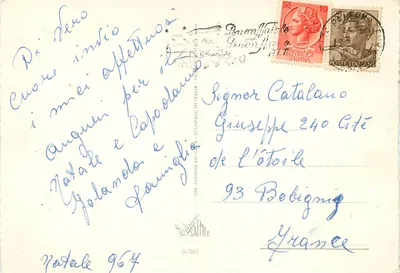 Di Vero
Cuore invio
i miei affettuosi
auguri per il
Natale e Capodanno
Jolanda e
famiglia
Natale 967
Buon Natale
Signor Catalano
Giuseppe 240 Cité
de l'étoile
93 Bobigny
France